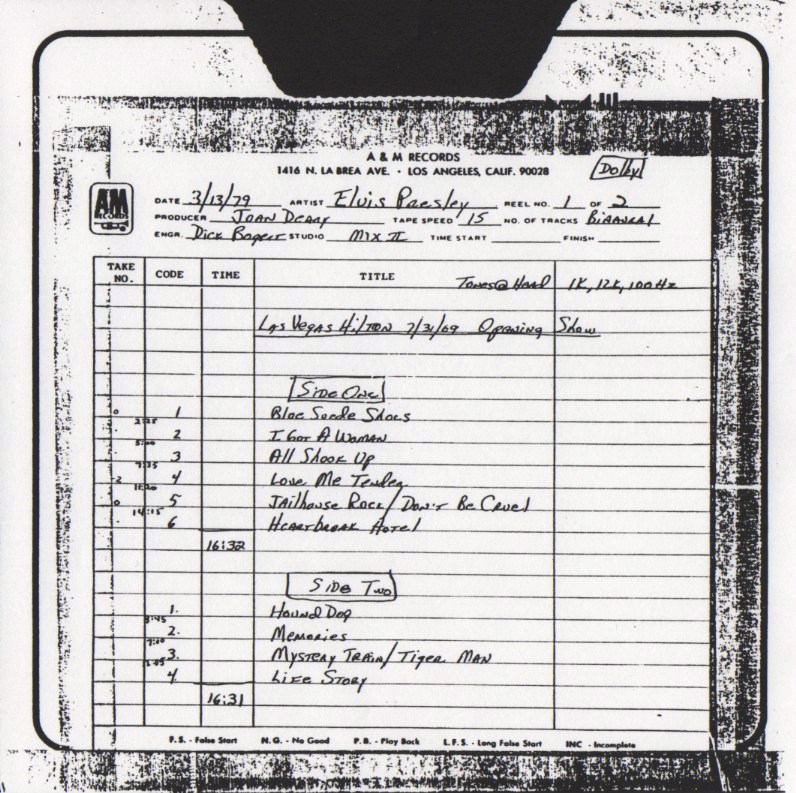 A & M RECORDS
1416 N. LA BREA AVE. • LOS ANGELES, CALIF. 90028
Dolby
AM
RECORDS
DATE 3/13/79 ARTIST Elvis Presley REEL NO. 1 OF 2
PRODUCER Joan Deary TAPE SPEED 15 NO. OF TRACKS Binaural
ENGR. Dick Bogert STUDIO Mix II TIME START FINISH
TAKE NO. CODE TIME TITLE Tones @ Head 1K, 12K, 100 Hz
Las Vegas Hilton 7/31/69 Opening Show
Side One
0 1 Blue Suede Shoes
2:25
2 I Got A Woman
5:00
3 All Shook Up
7:25
2 4 Love Me Tender
11:20
0 5 Jailhouse Rock/Don't Be Cruel
14:15
6 Heartbreak Hotel
16:32
Side Two
1. Hound Dog
3:45
2. Memories
7:10
3. Mystery Train/Tiger Man
4. Life Story
16:31
F.S. - False Start N.G. - No Good P.B. - Play Back L.F.S. - Long False Start INC - Incomplete